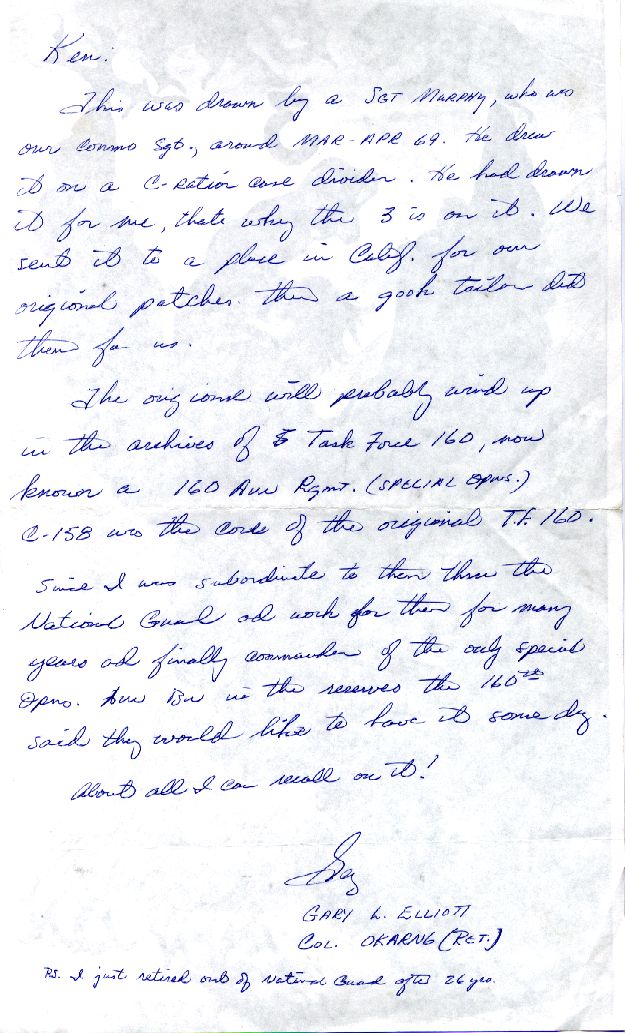 Ken:
This was drawn by a SGT MURPHY, who was
our Commo Sgt., around MAR-APR 69. He drew
it on a C-Ration case divider. He had drawn
it for me, thats why the 3 is on it. We
sent it to a place in Calif. for our
origional patches. Then a gook tailor did
them for us.
The origional will probably wind up
in the archives of Task Force 160, now
known a 160 Avn Rgmt. (SPECIAL Opns.)
C-158 was the core of the origional T.F. 160.
Since I was subordinate to them thru the
National Guard ad work for them for many
years ad finally commander of the only special
Opns. Avn Bn in the reserves the 160th
said they would like to have it some day.
About all I can recall on it!
Gary
GARY L. ELLIOTT
COL. OKARNG (RET.)
PS. I just retired out of National Guard after 26 yrs.